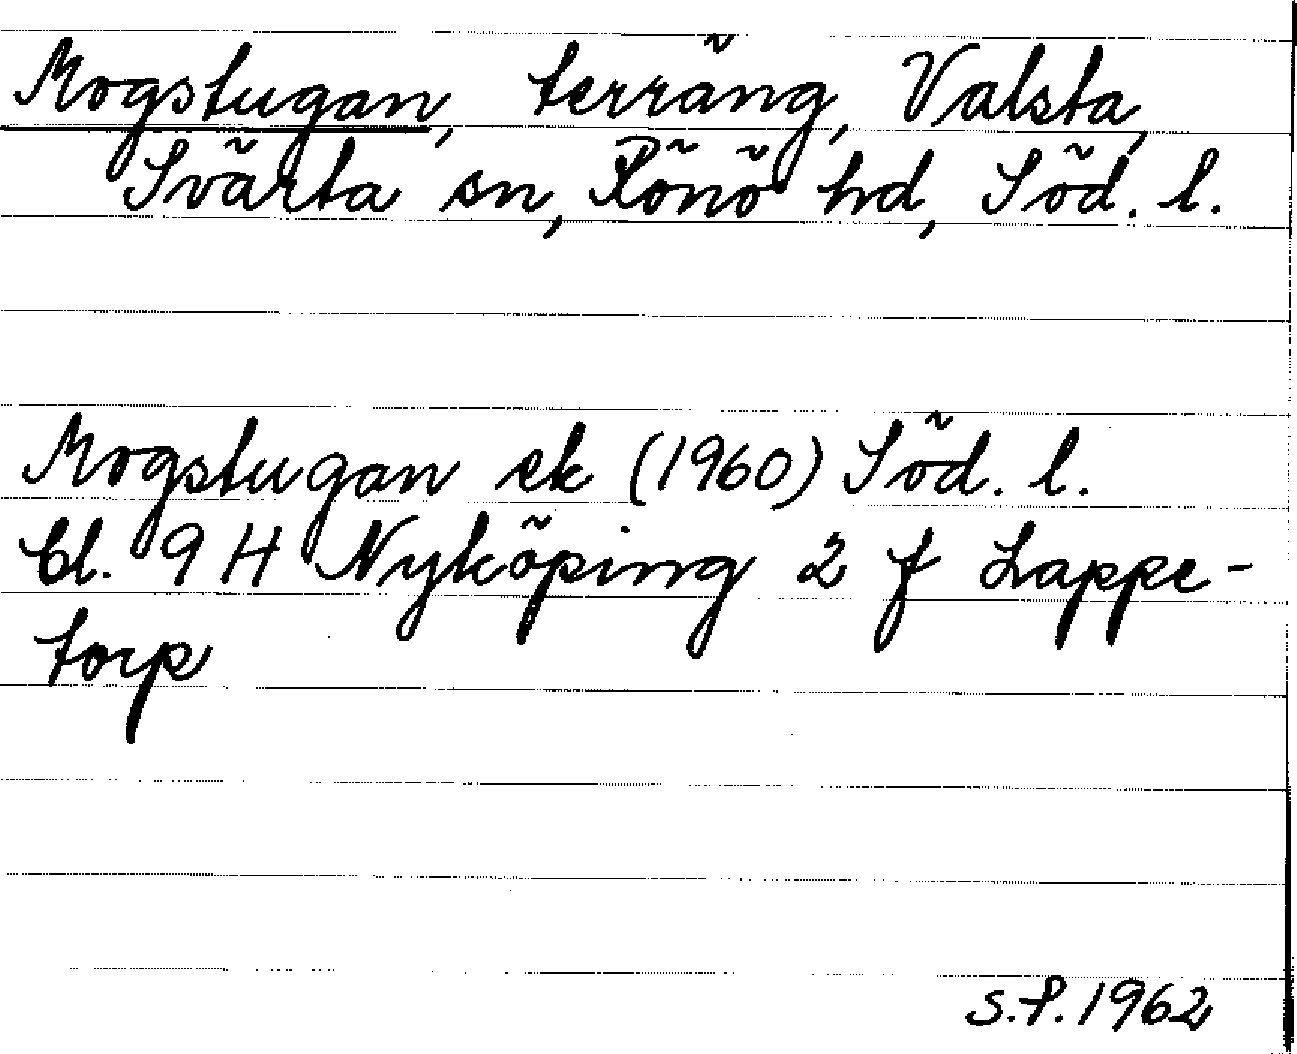 Mogstugan, terräng, Valsta,
Svärta sn, Rönö hd, Söd. l.
Mogstugan ek (1960) Söd. l.
bl. 9 H Nyköping 2 f Lappe-
torp
S.P. 1962